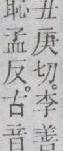 丑庚切。李善
恥孟反。古音